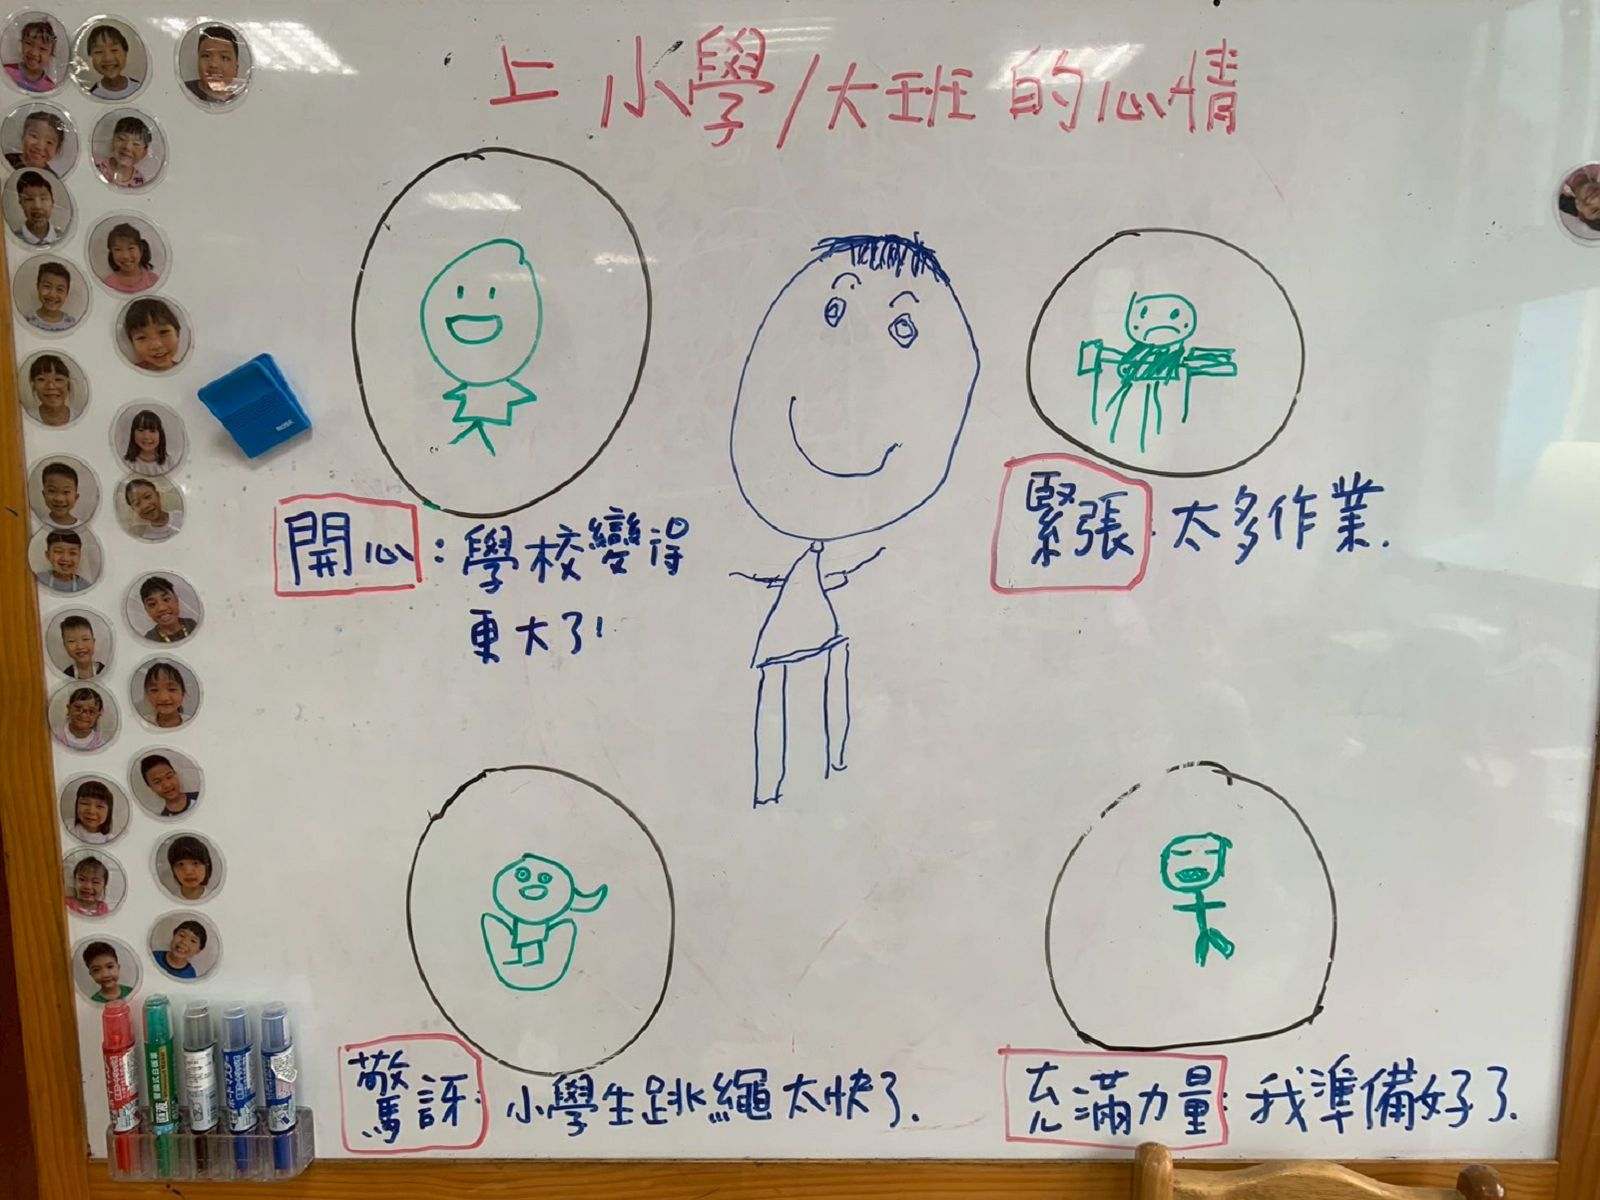 上小學/大班的心情
開心:學校變得
更大了!
緊張:太多作業.
驚訝:小學生跳繩太快了.
充滿力量:我準備好了.